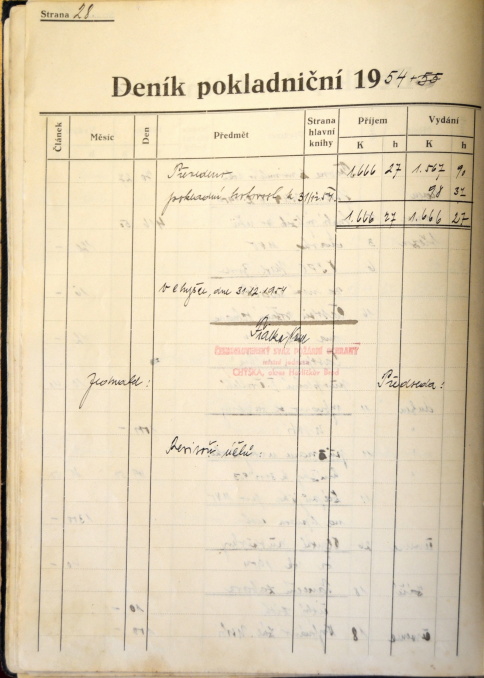 Strana 28
Deník pokladniční 1954+55
Článek Měsíc Den Předmět Strana hlavní knihy Příjem Vydání
K h K h
Převedeno 1.666 27 1.567 90
pokladní hotovost k 31/12 54 98 37
1.666 27 1.666 27
v Chyšce, dne 31.12.1954
ČESKOSLOVENSKÝ SVAZ POŽÁRNÍ OCHRANY
místní jednota
CHYŠKA, okres Havlíčkův Brod
Jednatel: Předseda:
Revisoři účtů